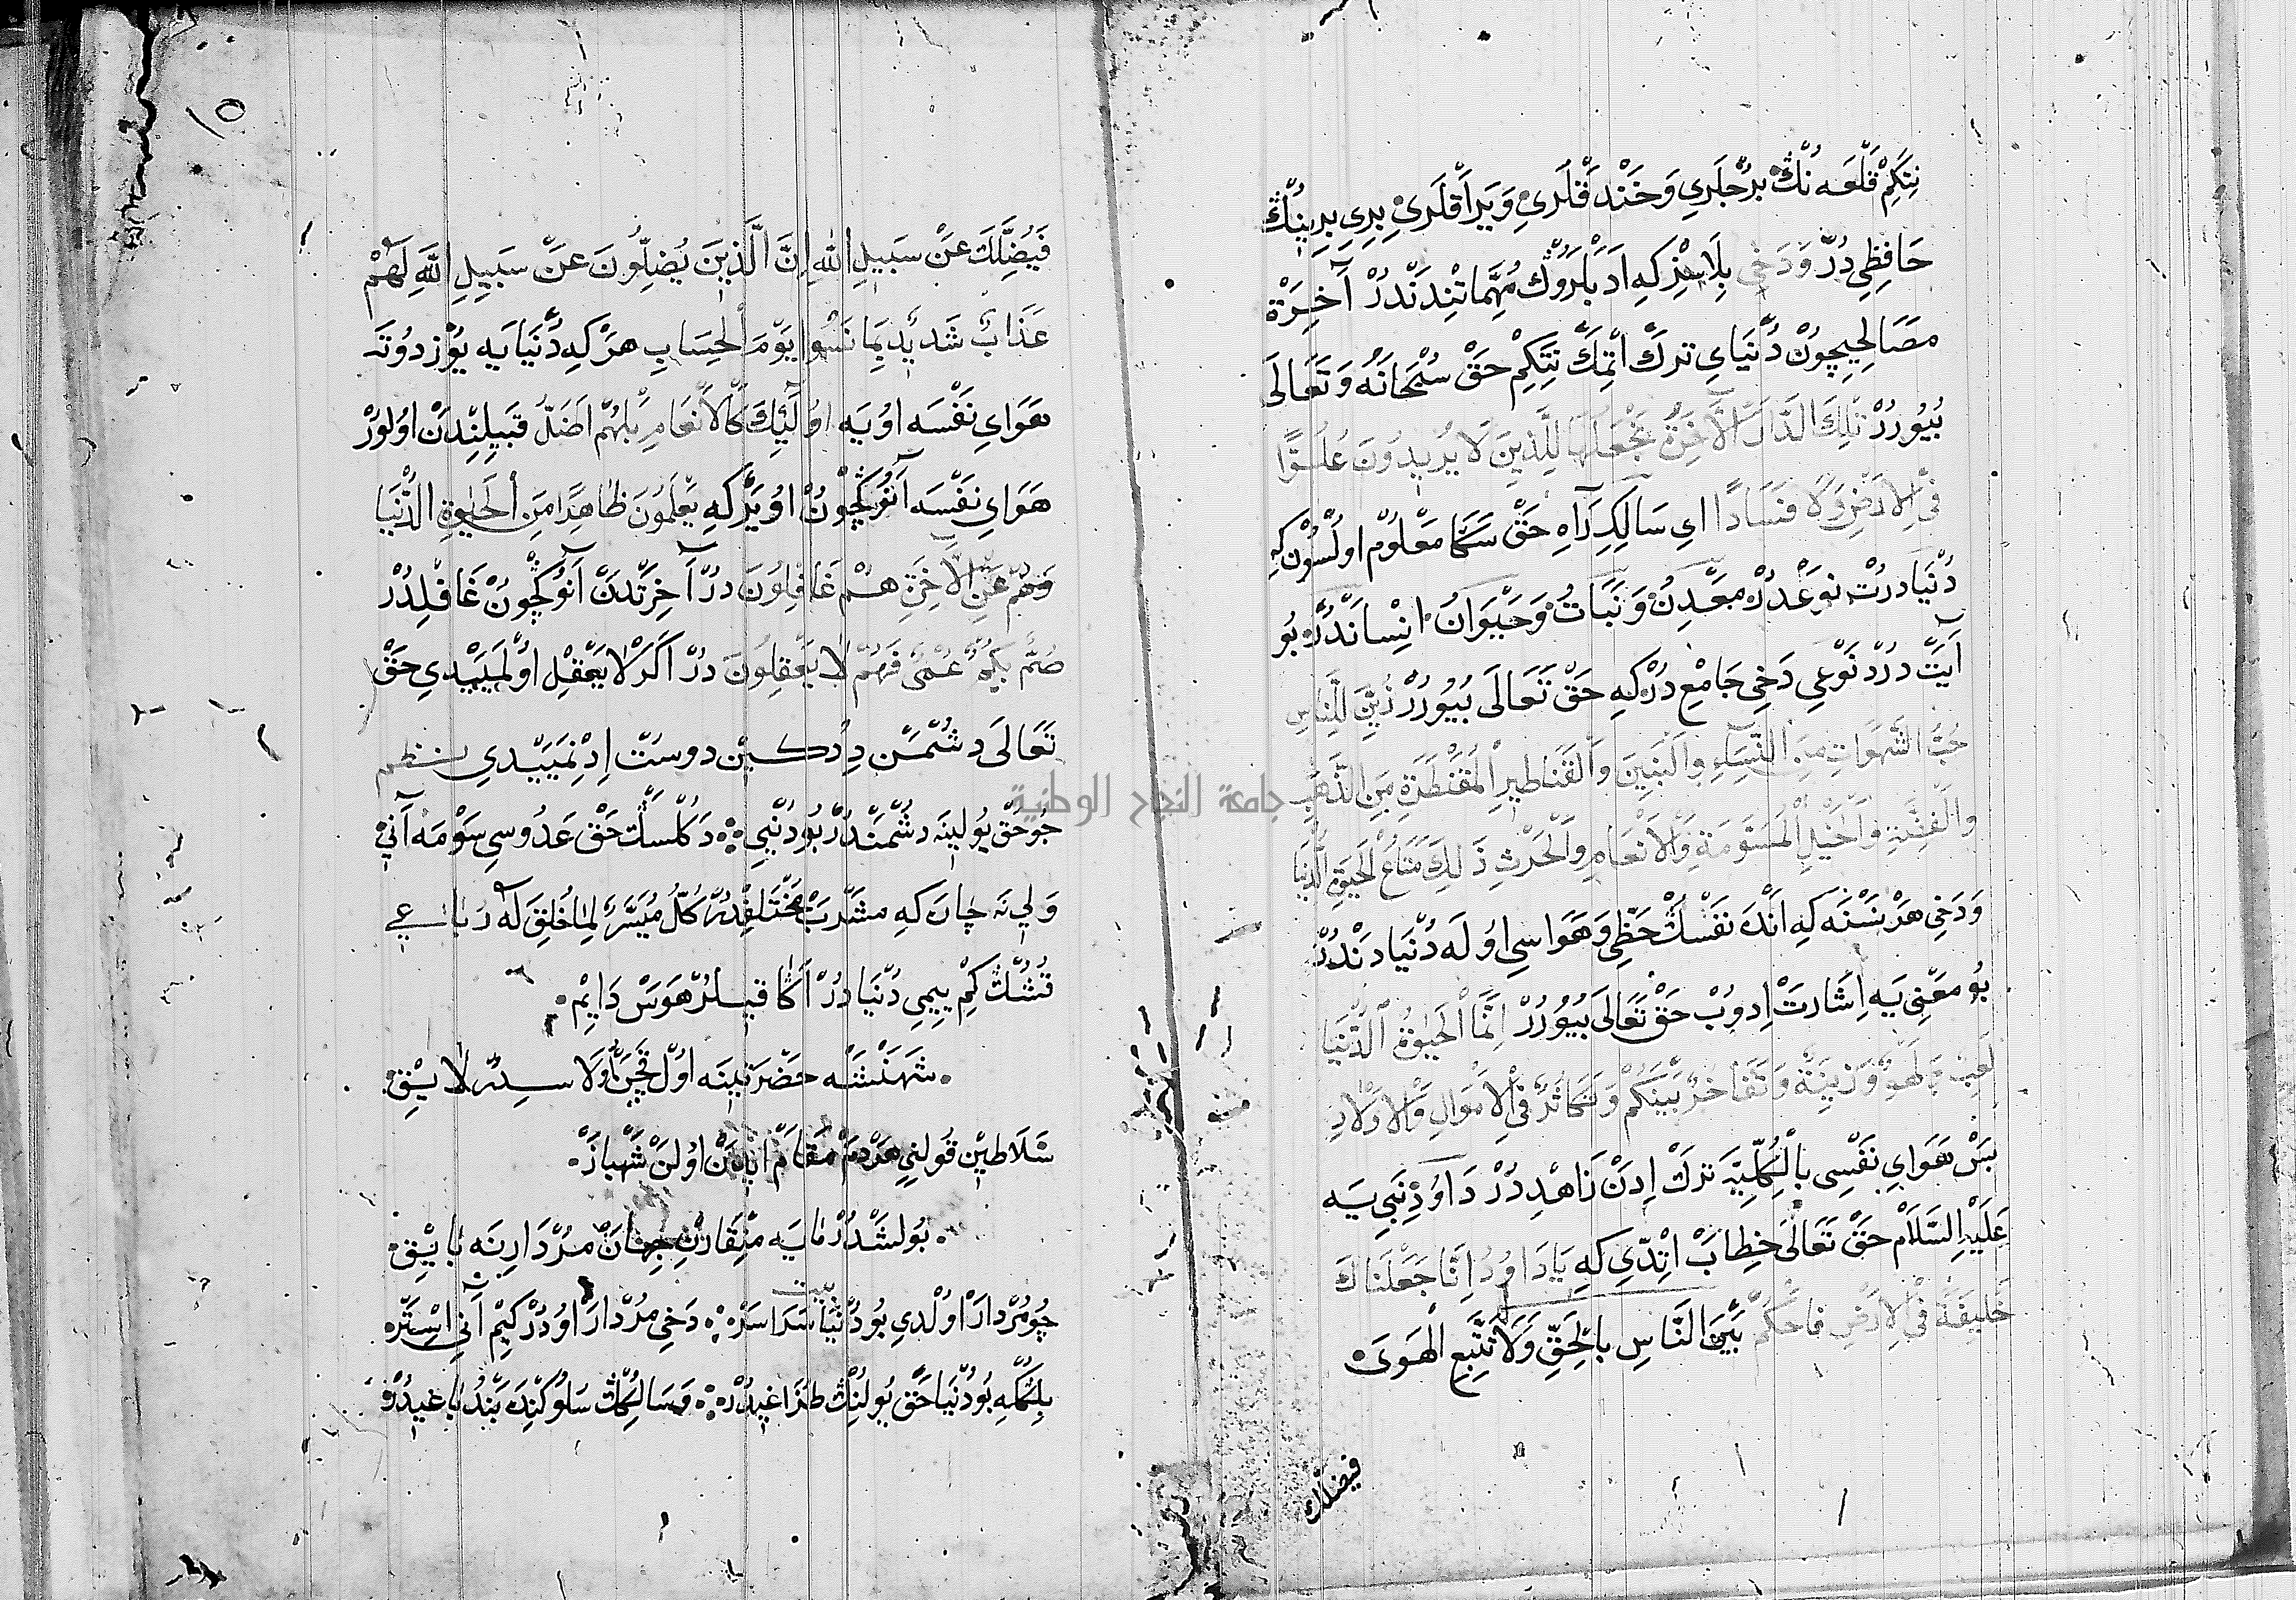 نِتَكِمْ قَلْعَه نُڭ بُرْجلَرِي وَخَنْدَقْلَرِي وَيَرَاقْلَرِي بِرِي بِرِينُڭ
حَافِظِي دُرْ وَدَخِي بِلَاسِزْ كِه اَدْبَلَرُوڭ مُهِمَّاتِنْدَنْدُرْ آخِرَة
مَصَالِحِيچُونْ دُنْيَايِ تَرك اتْمَك نِتَكِمْ حَقْ سُبْحَانَهُ وَتَعَالَى
بُيُورُرْ تِلْكَ الدَّارُ الْآخِرَةُ نَجْعَلُهَا لِلَّذِينَ لَا يُرِيدُونَ عُلُوًّا
فِي الْاَرْضِ وَلَا فَسَادًا اي سَالِكِ رَاهِ حَقْ سَكَا مَعْلُومْ اولْسُونْ كِه
دُنْيَا دُرْتْ نَوعْدُرْ مَعْدِنْ وَنَبَاتْ وَحَيْوَانْ اِنْسَانْدُرْ بُو
آيَتْ دُرْدْ نَوْعِي دَخِي جَامِعْ دُرْكِه حَقْ تَعَالَى بُيُورُرْ زُيِّنَ لِلنَّاسِ
حُبُّ الشَّهَوَاتِ مِنَ النِّسَاءِ وَالْبَنِينَ وَالْقَنَاطِيرِ الْمُقَنْطَرَةِ مِنَ الذَّهَبِ
وَالْفِضَّةِ وَالْخَيْلِ الْمُسَوَّمَةِ وَالْاَنْعَامِ وَالْحَرْثِ ذَلِكَ مَتَاعُ الْحَيَوةِ الدُّنْيَا
وَدَخِي هَرْ نَسْنَه كِه اَنْدَه نَفْسُڭ حَظِّي وَهَوَاسِي اوُلَه دُنْيَادَنْدُرْ
بُو مَعْنِي يَه اِشَارَتْ اِدُوبْ حَقْ تَعَالَى بُيُورُرْ اِنَّمَا الْحَيَوةُ الدُّنْيَا
لَعِبٌ وَلَهْوٌ وَزِينَةٌ وَتَفَاخُرٌ بَيْنَكُمْ وَتَكَاثُرٌ فِي الْاَمْوَالِ وَالْاَوْلَادِ
بَسْ هَوَايِ نَفْسِي بِالْكُلِّيَّه تَرْك اِدَنْ زَاهِدْدُرْ دَاوُدْ نَبِي يَه
عَلَيْهِ السَّلَامْ حَقْ تَعَالَى خِطَابْ اتْدِي كِه يَادَاوُدُ اِنَّا جَعَلْنَاكَ
خَلِيفَةً فِي الْاَرْضِ فَاحْكُمْ بَيْنَ النَّاسِ بِالْحَقِّ وَلَا تَتَّبِعِ الْهَوَى
فيضلك
١٥
فَيُضِلَّكَ عَنْ سَبِيلِ اللّٰهِ اِنَّ الَّذِينَ يُضِلُّونَ عَنْ سَبِيلِ اللّٰهِ لَهُمْ
عَذَابٌ شَدِيدٌ بِمَا نَسُوا يَوْمَ الْحِسَابِ هَرْ كِه دُنْيَا يَه يُوزْ دُوتَه
هَوَايِ نَفْسَه اوُيَه اوُلَئِكَ كَالْاَنْعَامِ بَلْهُمْ اَضَلُّ قَبِيلِنْدَنْ اولُورْ
هَوَايِ نَفْسَه آنُوڭچُونْ اوُيَرْ كِه يَعْلَمُونَ ظَاهِرًا مِنَ الْحَيَوةِ الدُّنْيَا
وَهُمْ عَنِ الْآخِرَةِ هُمْ غَافِلُونَ دُرْ آخِرَتْدَنْ آنُوڭچُونْ غَافِلْدُرْ
صُمٌّ بُكْمٌ عُمْيٌ فَهُمْ لَا يَعْقِلُونَ دُرْ اَكَرْ لَا يَعْقِلْ اوُلْمَيَيْدِي حَقْ
تَعَالَى دُشْمَنْ دِدُكِينْ دوسْتْ اِدِنْمَيَيْدِي نظم
چُو حَقْ يُولِينَه دُشْمَنْدُرْ بُو دُنْيِي دَكُلْسَڭ حَقْ عَدُوسِي سَوْمَه آنِي
وَلِي نَه چَارَه كِه مَشْرَبْ مُخْتَلِفْدُرْ كُلٌّ مُيَسَّرٌ لِمَا خُلِقَ لَهُ رباعي
قُشُڭ كِمْ يِيمِي دُنْيَا دُرْ اَكَا قِيلُرْ هَوَسْ دَايِمْ
شَهَنْشَه حَضْرَتِينَه اوُلْ قَچَنْ اوُلَا سِدْرَه لَايِقْ
سَلَاطِينْ قُولِنِي هَرْدَمْ مَقَامْ ادِنَنْ اوُلَنْ شَهْبَازْ
بُولَشْدُرْمَايَه مِنْقَارِنْ جِهَانْ مُرْدَارِينَه بَايِقْ
چُو مُرْدَارْ اوُلْدِي بُو دُنْيَا سَرَاسَرْ دَخِي مُرْدَارْ اوُدُرْ كِيمْ آنِي اسْتَرْ
بِلِڭكِه بُو دُنْيَا حَقْ يُولُنِڭ طُزَاغِيدُرْ وَسَالِكُڭ سَلُوكِنْدَه بَنْد بَاغِيدُرْ
جامعة النجاح الوطنية